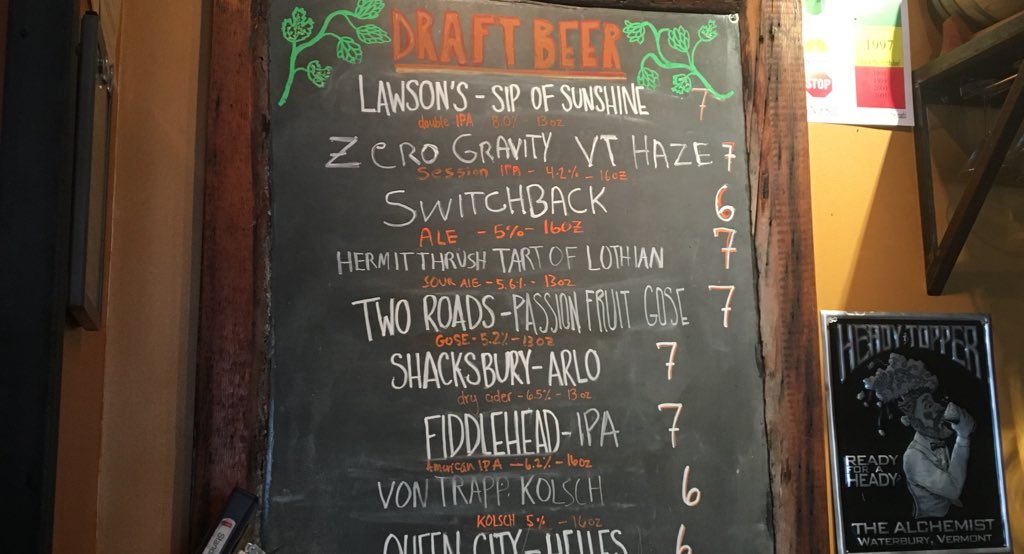 DRAFT BEER
LAWSON'S - SIP OF SUNSHINE 7
double IPA 8.0% - 13oz
ZERO GRAVITY VT HAZE 7
Session IPA - 4.2% - 16oz
SWITCHBACK 6
ALE - 5% - 16oz
HERMIT THRUSH TART OF LOTHIAN 7
SOUR ALE - 5.6% - 13oz
TWO ROADS - PASSION FRUIT GOSE 7
GOSE - 5.2% - 13oz
SHACKSBURY - ARLO 7
dry cider - 6.5% - 13oz
FIDDLEHEAD - IPA 7
American IPA - 6.2% - 16oz
VON TRAPP. KOLSCH 6
KÖLSCH 5% - 16oz
QUEEN CITY - HELLES 6
1997
STOP
HEADY TOPPER
READY
FOR A
HEADY
THE ALCHEMIST
WATERBURY, VERMONT